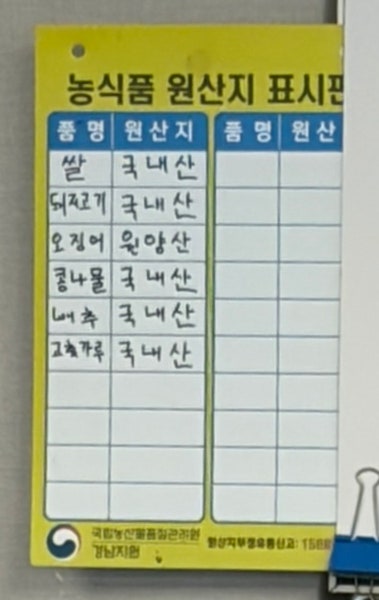 농식품 원산지 표시판
품명 원산지 품명 원산
쌀 국내산
돼지고기 국내산
오징어 원양산
콩나물 국내산
배추 국내산
고춧가루 국내산
국립농산물품질관리원
경남지원
원산지부정유통신고: 158